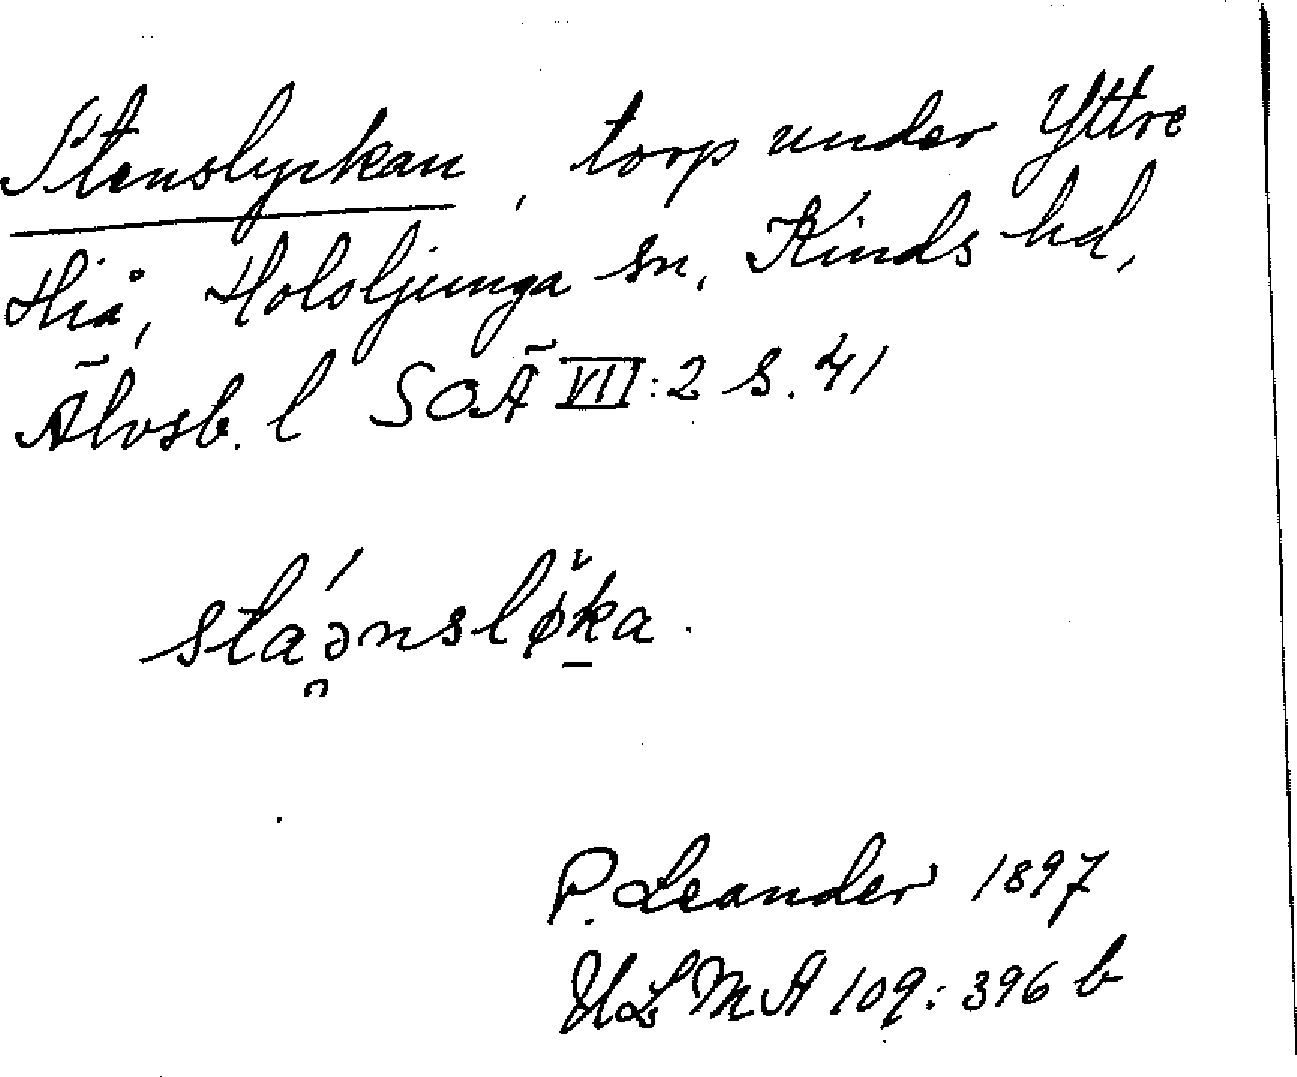 Stenslyckan, torp under Yttre
Hiå, Holsljunga sn, Kinds hd,
Älvsb. l SOÄ VII:2 s. 41
sta̯ə́nsløka.
P. Leander 1897
ULMA 109:396 b